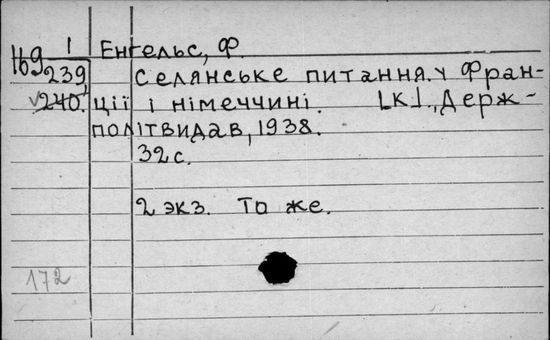 169 1 Енгельс, Ф.
239, Селянське питання у Фран-
√240. ції і німеччині. [К]., Держ-
політвидав, 1938.
32 с.
2 экз. То же.
172